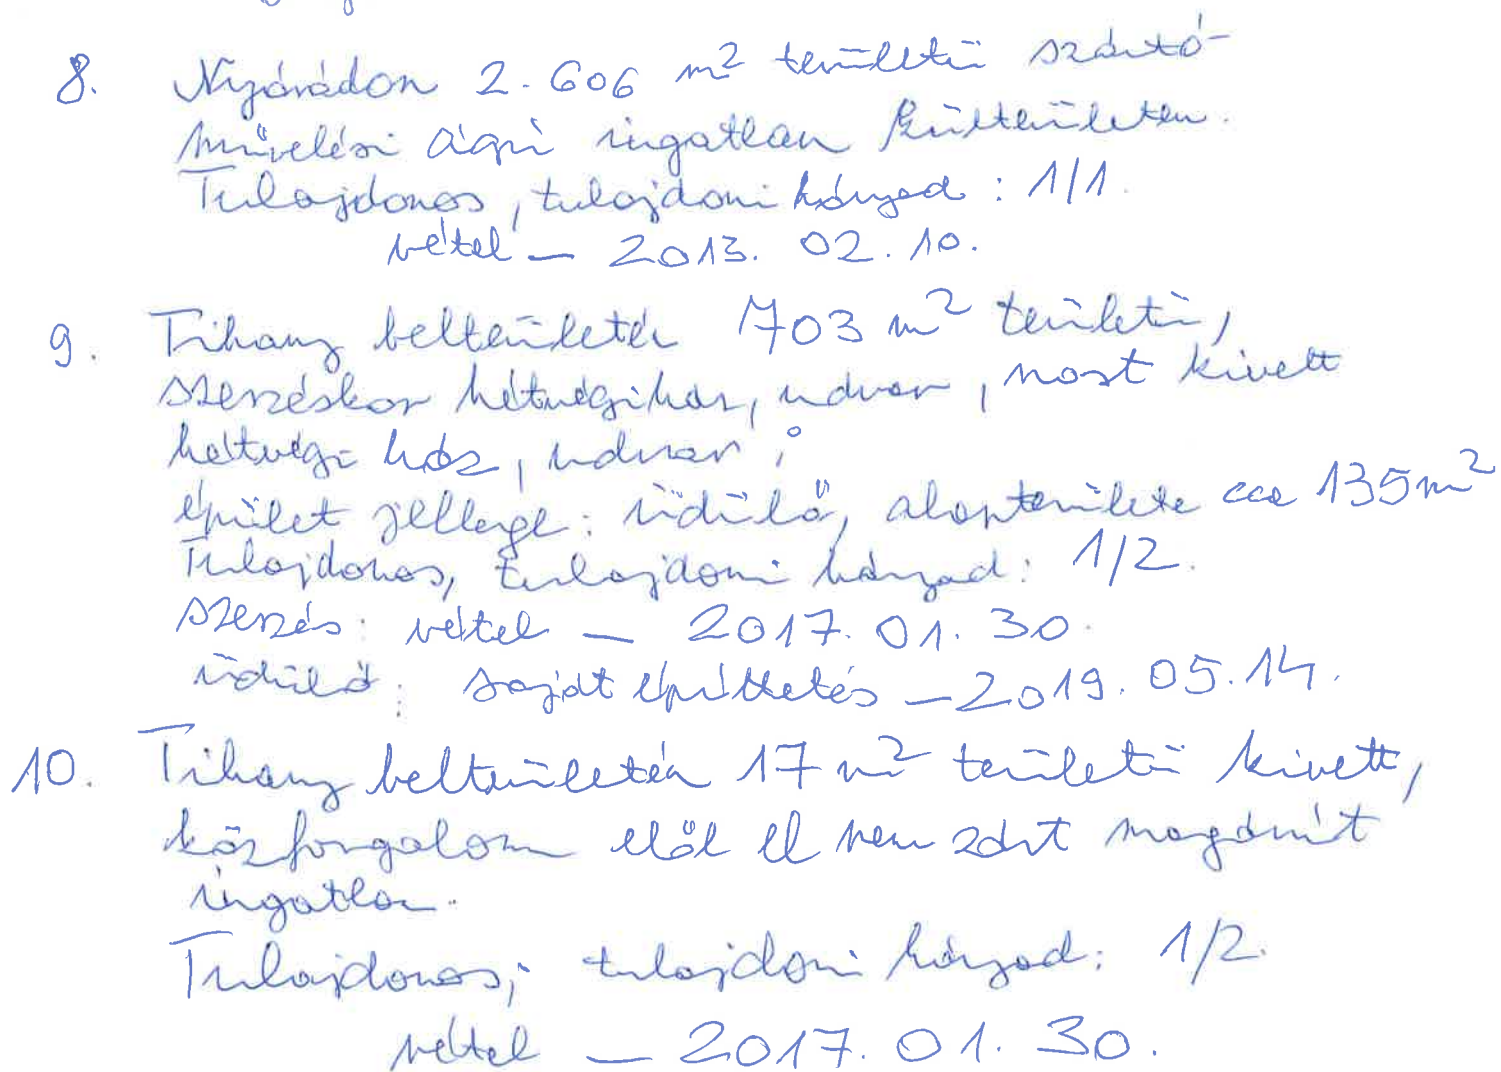 8. Nyárádon 2.606 m² területű szántó
művelési ágú ingatlan külterületen.
Tulajdonos, tulajdoni hányad: 1/1.
vétel – 2013. 02. 10.
9. Tihany belterületén 703 m² területű,
szerzéskor hétvégiház, udvar, most kivett
hétvégi ház, udvar;
épület jellege: üdülő, alapterülete cca 135 m²
Tulajdonos, tulajdoni hányad: 1/2.
szerzés: vétel – 2017. 01. 30.
üdülő: saját építtetés – 2019. 05. 14.
10. Tihany belterületén 17 m² területű kivett,
közforgalom elől el nem zárt magánút
ingatlan.
Tulajdonos; tulajdoni hányad: 1/2.
vétel – 2017. 01. 30.